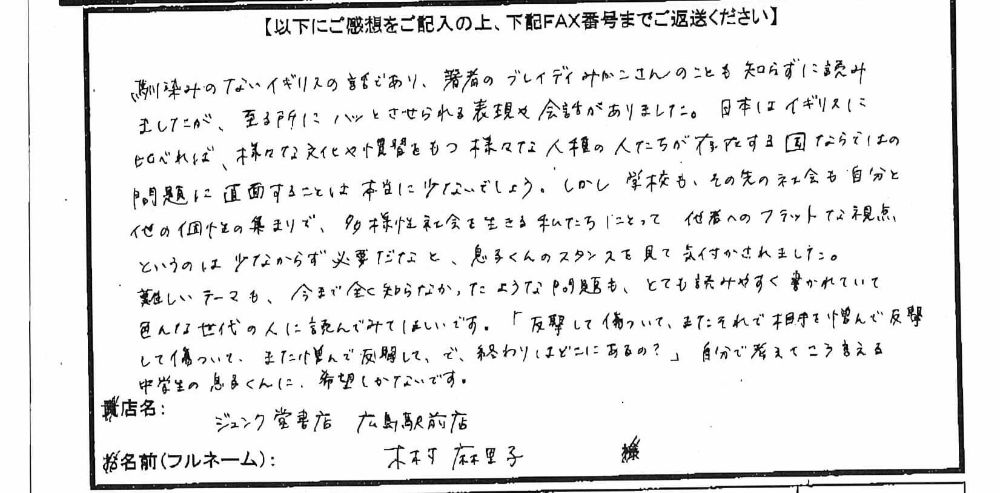 【以下にご感想をご記入の上、下記FAX番号までご返送ください】
馴染みのないイギリスの話であり、著者のブレイディみかこさんのことも知らずに読み
ましたが、至る所にハッとさせられる表現や会話がありました。日本はイギリスに
比べれば、様々な文化や慣習をもつ様々な人種の人たちが存在する国ならではの
問題に直面することは本当に少ないでしょう。しかし学校も、その先の社会も自分と
他の個性の集まりで、多様性社会を生きる私たちにとって他者へのフラットな視点
というのは少なからず必要だなと、息子くんのスタンスを見て気付かされました。
難しいテーマも、今まで全く知らなかったような問題も、とても読みやすく書かれていて
色んな世代の人に読んでみてほしいです。「反撃して傷ついて、またそれで相手を憎んで反撃
して傷ついて、また憎んで反撃して、で、終わりはどこにあるの?」自分で考えてこう言える
中学生の息子くんに、希望しかないです。
貴店名:
ジュンク堂書店 広島駅前店
お名前(フルネーム):
木村 麻里子 様